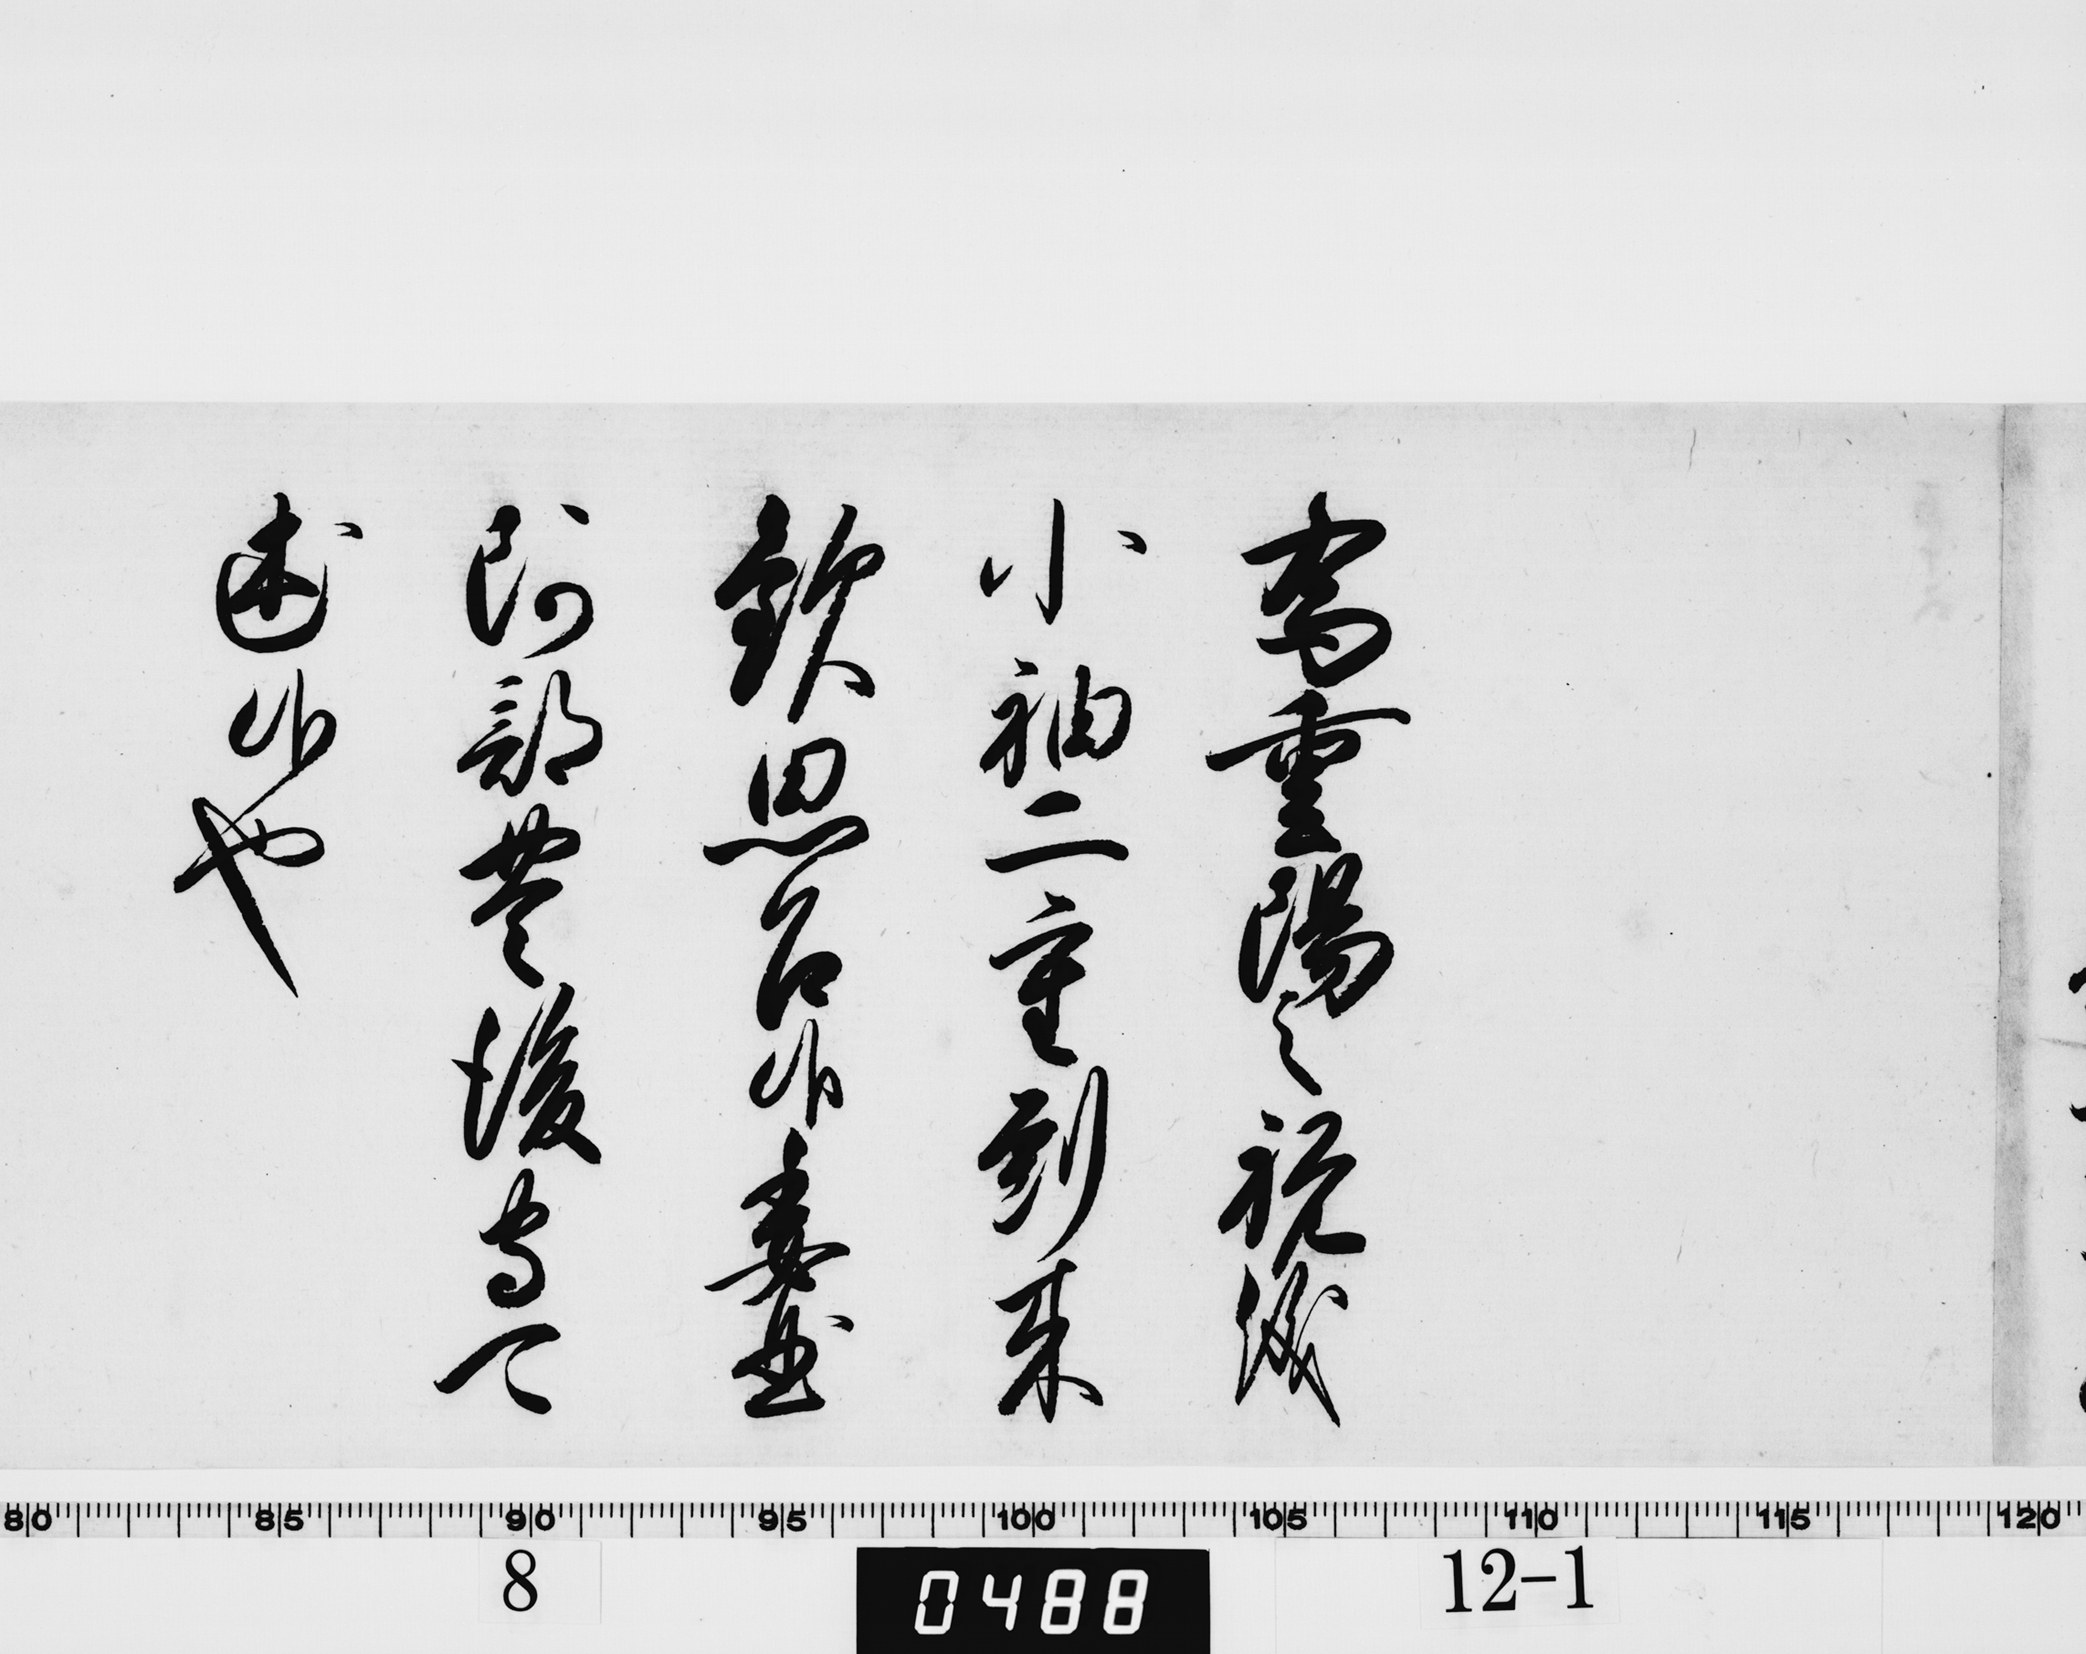 為重陽之祝儀
小袖二重到来
歓思召候委曲
阿部豊後守可
述候也
80 85 90 95 100 105 110 115 120
8 0488 12-1